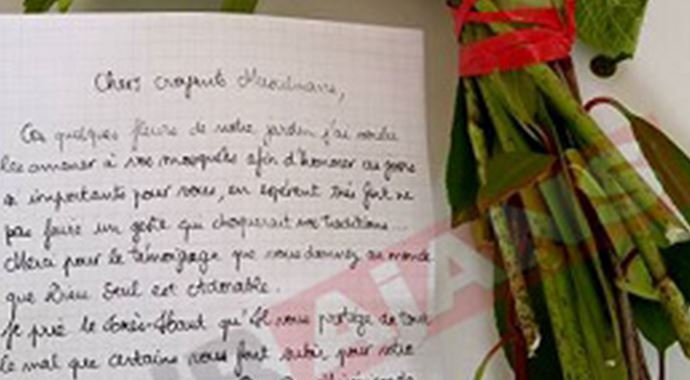 Chers croyants Musulmans,
Ces quelques fleurs de notre jardin j'ai voulu
les amener à vos mosquées afin d'honorer ces jours
si importants pour vous, en espérant très fort ne
pas faire un geste qui choquerait vos traditions...
Merci pour le témoignage que vous donnez au monde
que Dieu Seul est Adorable.
Je prie le Très-Haut qu'Il vous protège de tout
le mal que certains vous font subir pour votre